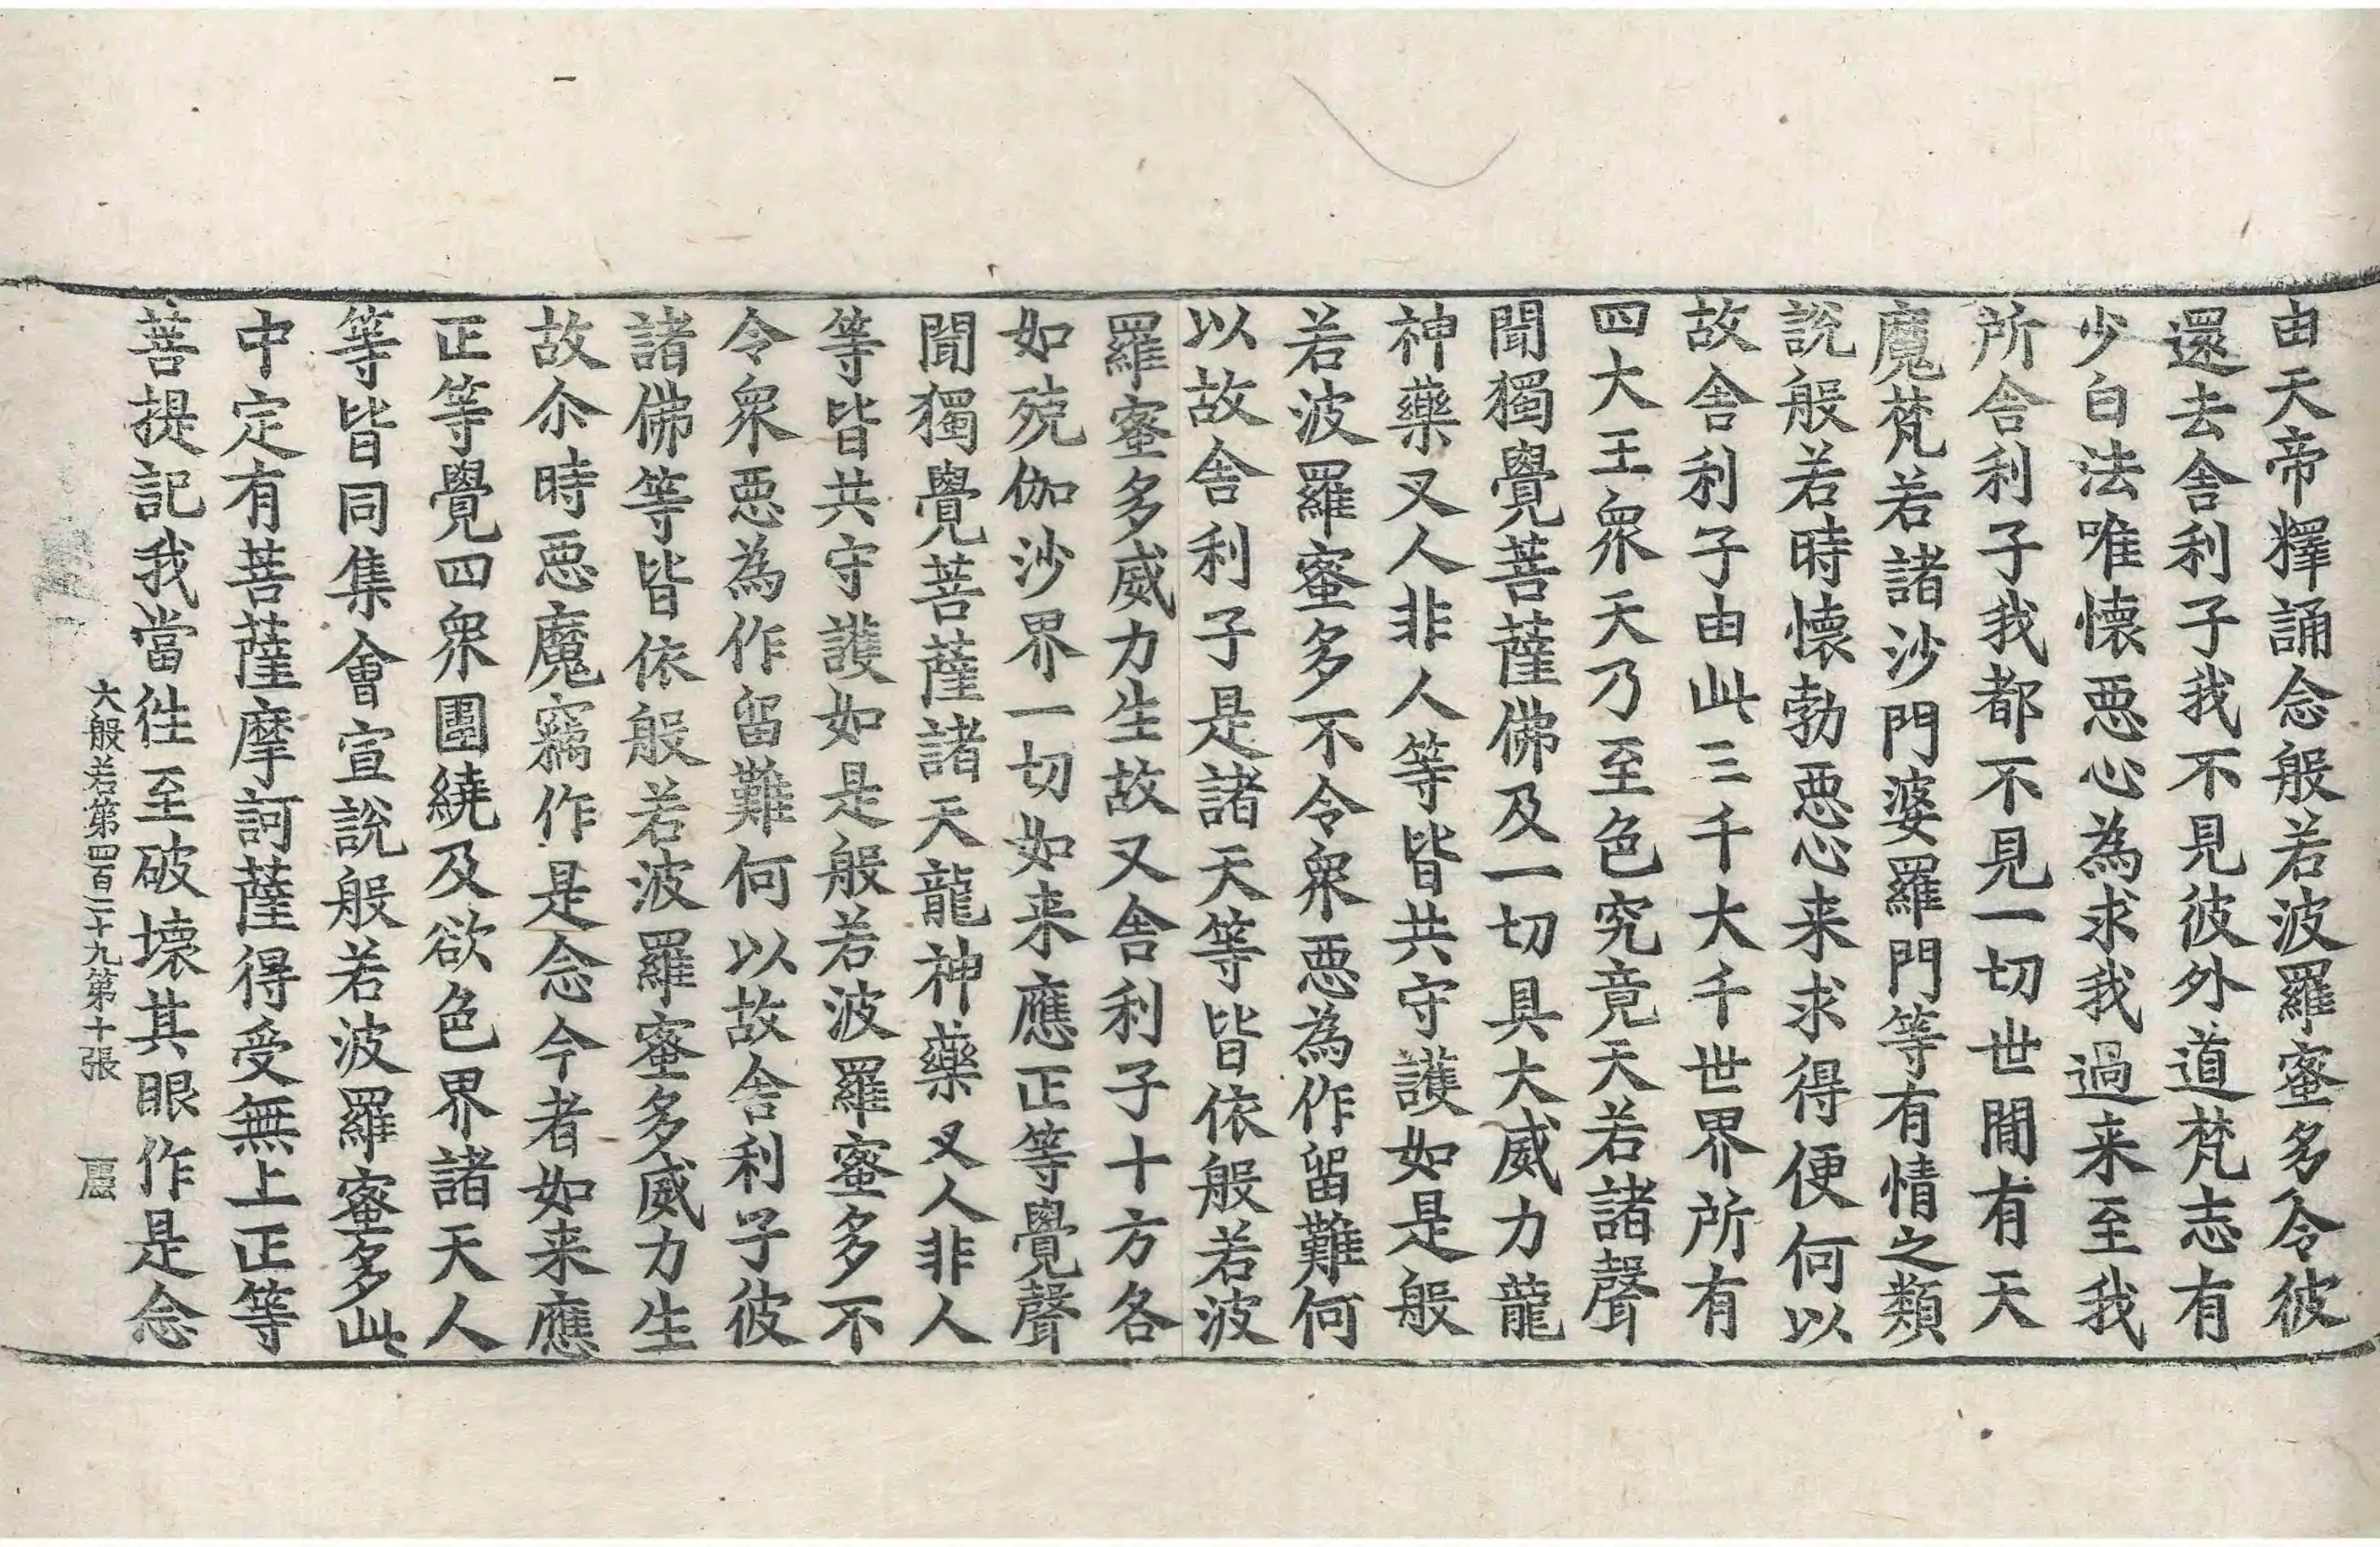 由天帝釋誦念般若波羅蜜多令彼
還去舍利子我不見彼外道梵志有
少白法唯懐惡心為求我過来至我
所舍利子我都不見一切世間有天
魔梵若諸沙門婆羅門等有情之類
說般若時懐勃惡心来求得便何以
故舍利子由此三千大千世界所有
四大王衆天乃至色究竟天若諸聲
聞獨覺菩薩佛及一切具大威力龍
神藥叉人非人等皆共守護如是般
若波羅蜜多不令衆惡為作留難何
以故舍利子是諸天等皆依般若波
羅蜜多威力生故又舍利子十方各
如殑伽沙界一切如来應正等覺聲
聞獨覺菩薩諸天龍神藥叉人非人
等皆共守護如是般若波羅蜜多不
令衆惡為作留難何以故舍利子彼
諸佛等皆依般若波羅蜜多威力生
故尒時惡魔竊作是念今者如来應
正等覺四衆圍繞及欲色界諸天人
等皆同集會宣說般若波羅蜜多此
中定有菩薩摩訶薩得受無上正等
菩提記我當徃至破壊其眼作是念
大般若第四百二十九第十張